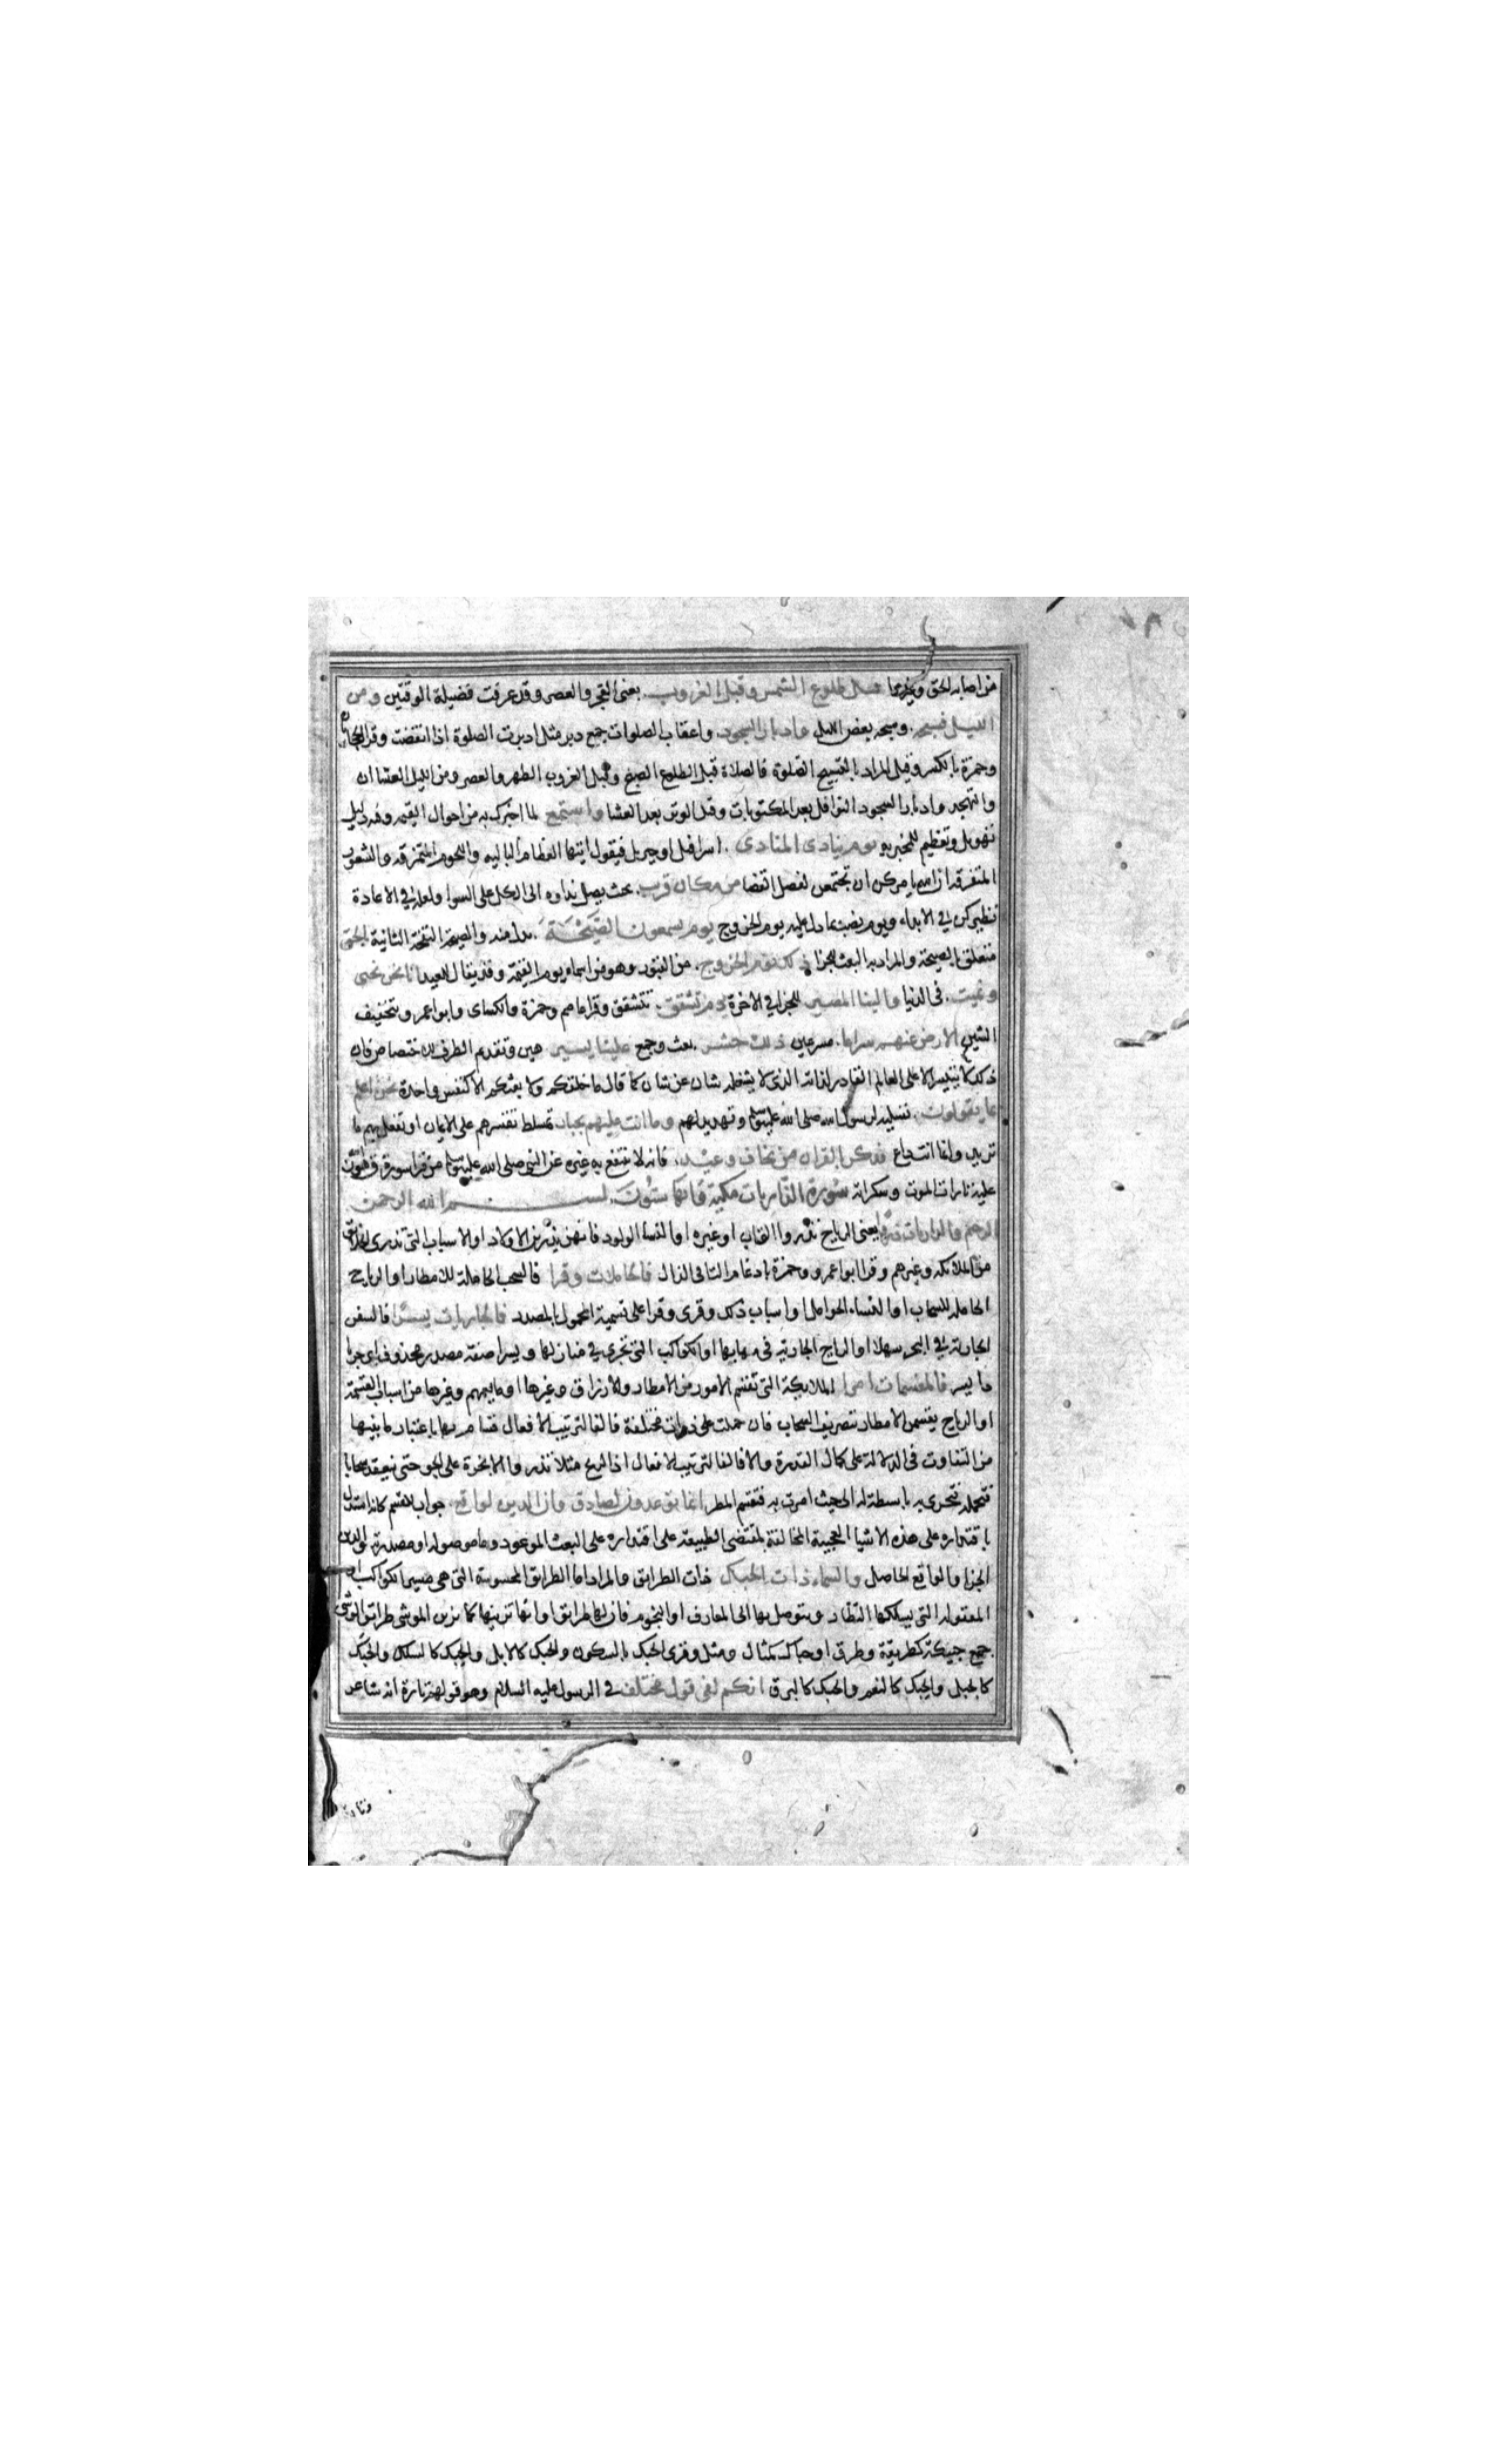 من اصابه الحق وغيرهما قبل طلوع الشمس وقبل الغروب. يعنى الفجر والعصر وقد عرفت فضيلة الوقتين ومن
الليل فسبحه. وسبحه بعض الليل وادبار السجود. واعقاب الصلوات جمع دبر مثل ادبرت الصلوة اذا انقضت وقرا الحجازيان
وحمزة بالكسر وقيل المراد بالتسبيح الصلوة فالصلاة قبل الطلوع الصبح وقبل الغروب الظهر والعصر ومن الليل العشاان
والتهجد وادبار السجود النوافل بعد المكتوبات وقيل الوتر بعد العشا واستمع لما اخبرك به من احوال القيمه وفيه
تهويل وتعظيم للمخبر به يوم ينادى المنادى. اسرافيل او جبريل فيقول ايتها العظام الباليه واللحوم المتمزقه والشعور
المتفرقه ان الله يامركن ان تجتمعن لفصل القضا من مكان قريب. بحيث يصل نداوه الى الكل على السوا ولعله فى الاعادة
نظير كن فى الابداء ويوم نصب بما دل عليه يوم الخروج يوم يسمعون الصَّيْحَةَ. بدل منه والصيحة النفخة الثانية بالحق
متعلق بالصيحة والمراد به البعث للجزا ذلك يوم الخروج. من القبور وهو من اسماء يوم القيمة وقد يقال للعيد انا نحن نحيى
ونميت. فى الدنيا والينا المصير للجزا فى الاخرة يوم تشقق. تتشقق وقرا عاصم وحمزة والكساى وابو اعمرو بتخفيف
الشين الارض عنهم سراعا. مسرعين ذلك حشر. بعث وجمع علينا يسير هين وتقديم الظرف للاختصاص فان
ذلك لا يتيسر الا على العالم القادر لذاته الذى لا يشغله شان عن شان كما قال ما خلقكم ولا بعثكم الا كنفس واحدة نحن اعلم
بما يقولون. تسليه لرسول الله صلى الله عليه وسلم وتهديد لهم وما انت عليهم بجبار بمسلط تقسرهم على الايمان او تفعل بهم ما
تريد وانما انت داع فذكر بالقران من يخاف وعيد. فانه لا ينتفع به غيره عن النبى صلى الله عليه وسلم من قرا سورة ق هون
عليه تارات الموت وسكراته سُورة الذاريات مكية وايها ستُونَ. بسم الله الرحمن
الرحيم والذاريات ذروا يعنى الرياح تذروا التراب او غيره او النسا الولود فانهن يذرين الاولاد او الاسباب التى تذرى الخلائق
من الملائكه وغيرهم وقرا ابو اعمرو وحمزة بادغام التا فى الذال فالحاملات وقرا فالسحب الحاملة للامطار او الرياح
الحامله للسحاب او النساء الحوامل او اسباب ذلك وقرى وقرا على تسمية المحمول بالمصدر فالجاريات يسرًا فالسفن
الجارية فى البحر سهلا او الرياح الجارية فى مهابها او الكواكب التى تجرى فى منازلها ويسرا صفة مصدر محذوف اى جريا
ذا يسر فالمقسمات امرا الملائكة التى تقسم الامور من الامطار والارزاق وغيرها او ما يعمهم وغيرها من اسباب القسمة
او الرياح يقسمن الامطار بتصريف السحاب فان حملت على ذوات مختلفة فالفا لترتيب الاقسام بها باعتبار ما بينها
من التفاوت فى الدلالة على كمال القدرة والا فالفا لترتيب الافعال اذ الريح مثلا تذروا الابخرة على الجو حتى تنعقد سحابا
فتحمله فتجرى به باسطة له الى حيث امرت به فتقسم المطر انما توعدون لصادق وان الدين لواقع. جواب للقسم كانه استدل
باقتداره على هذه الاشيا العجيبة المخالفة لمقتضى الطبيعة على اقتداره على البعث الموعود وما موصوله او مصدرية والدين
الجزا والواقع الحاصل والسماء ذات الحبك ذات الطرايق والمراد اما الطرايق المحسوسة التى هى مسير الكواكب او
المعقوله التى يسلكها النظار ويتوصل بها الى المعارف او النجوم فان لها طرايق او انها تزينها كما يزين الموشى طرايق الوشى
جمع حبيكة كطريقة وطرق او حباك كمثال ومثل وقرى الحبك بالسكون والحبك كالابل والحبك كالسلك والحبك
كالجبل والحبك كالنعم والحبك كالبرق انكم لفى قول مختلف فى الرسول عليه السلام وهو قولهم تارة انه شاعر
وتارة